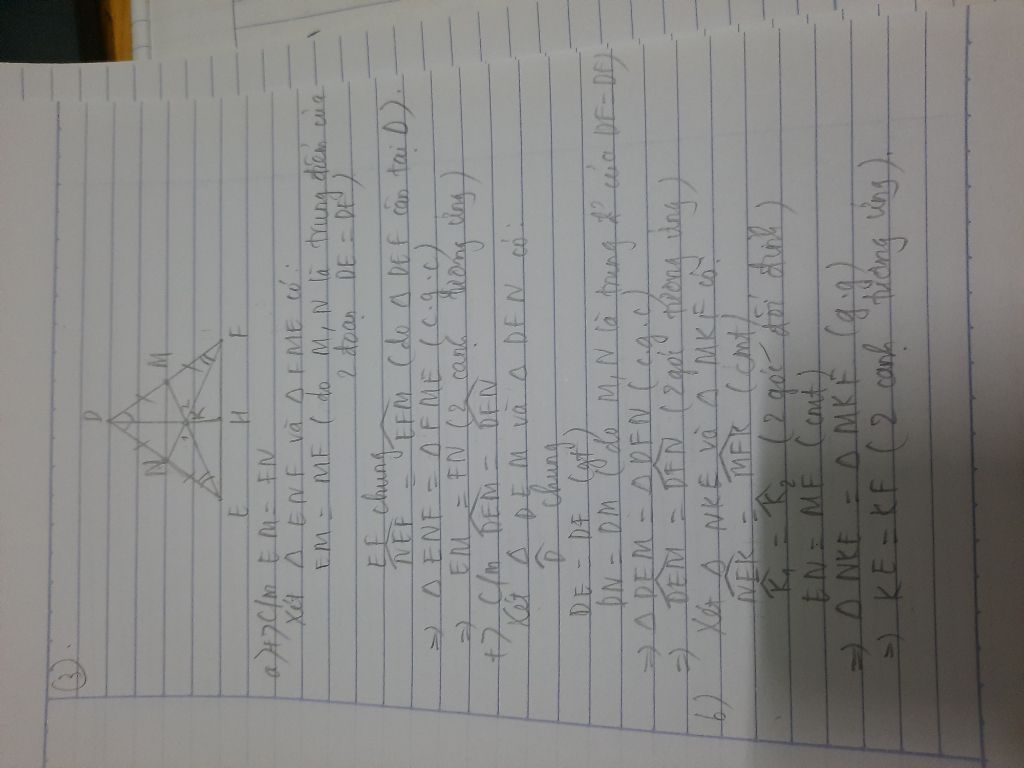 (3).
D
N M
K
E H F
a) +) C/m EM = FN
Xét Δ ENF và Δ FME có:
EM = MF (do M, N là trung điểm của
2 đoạn DE = DF)
EF chung
NEF = EFM (do Δ DEF cân tại D).
=) Δ ENF = Δ FME (c.g.c)
=) EM = FN (2 cạnh tương ứng)
+) C/m DEM = DFN
Xét Δ DEM và Δ DFN có:
D chung
DE = DF (gt)
DN = DM (do M, N là trung đ² của DE = DF)
=) Δ DEM = Δ DFN (c.g.c)
=) DEM = DFN (2 góc tương ứng)
b) Xét Δ NKE và Δ MKF có:
NEK = MFK (cmt)
K1 = K2 (2 góc đối đỉnh)
EN = MF (cmt)
=) Δ NKE = Δ MKF (g.g)
=) KE = KF (2 cạnh tương ứng).